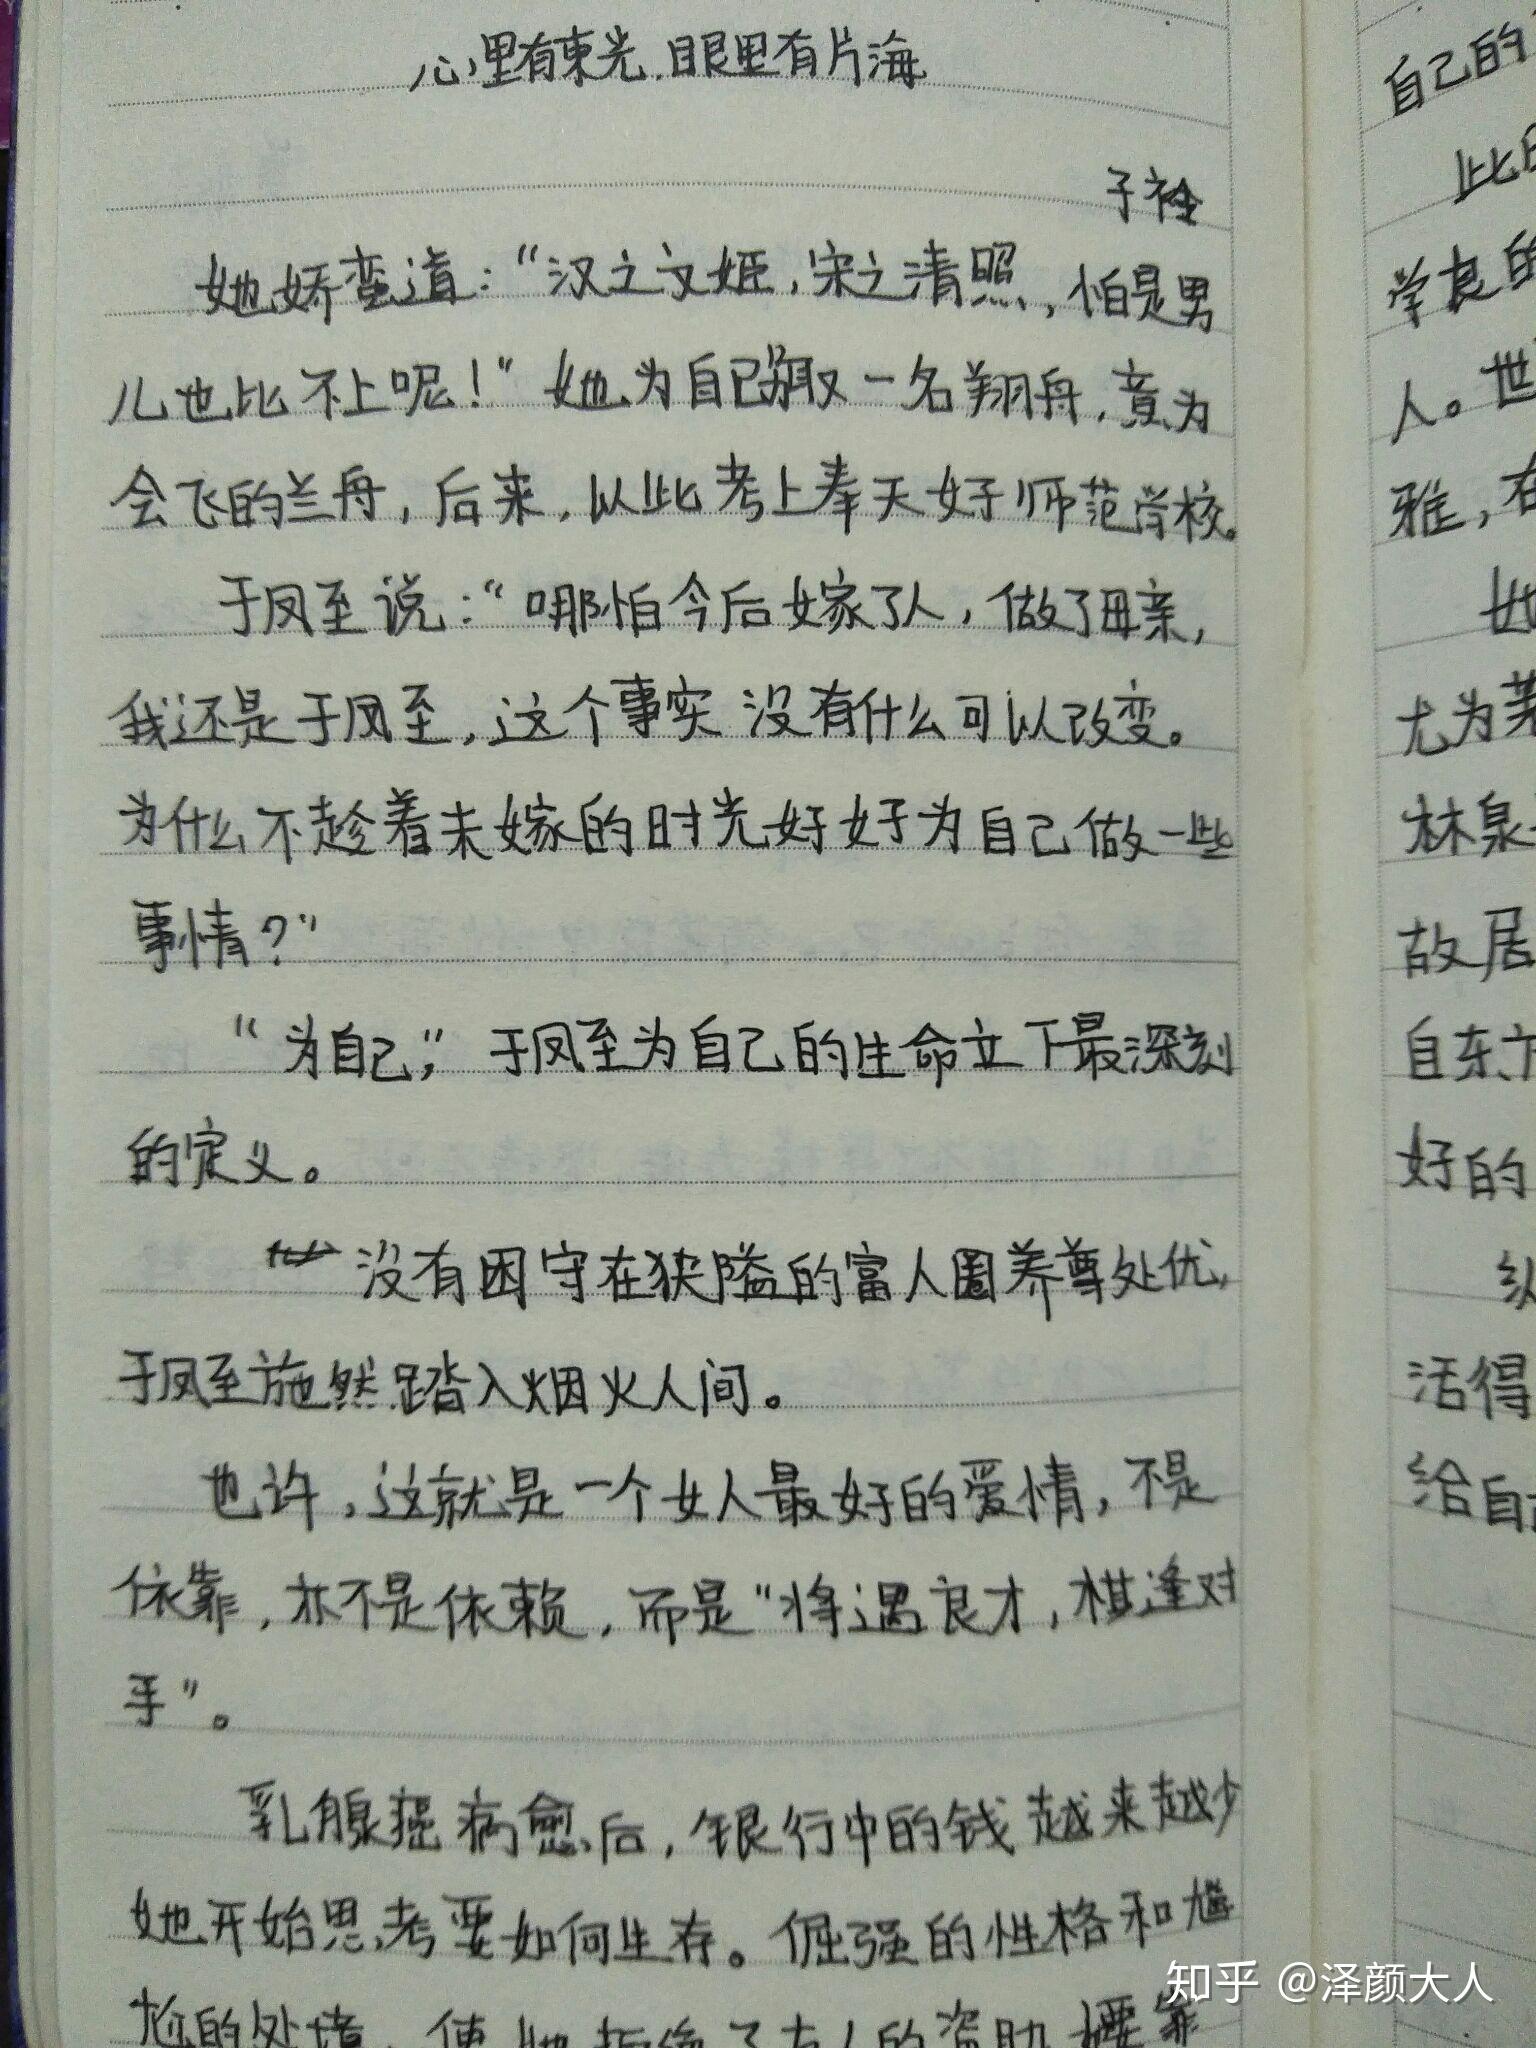 心里有束光，眼里有片海
子衿
她娇蛮道：“汉之文姬，宋之清照，怕是男
儿也比不上呢！”她为自己取一名翔舟，意为
会飞的兰舟，后来，以此考上奉天好师范学校。
于凤至说：“哪怕今后嫁了人，做了母亲，
我还是于凤至，这个事实没有什么可以改变。
为什么不趁着未嫁的时光好好为自己做一些
事情？”
“为自己”，于凤至为自己的生命立下最深刻
的定义。
没有困守在狭隘的富人圈养尊处优，
于凤至施然踏入烟火人间。
也许，这就是一个女人最好的爱情，不是
依靠，亦不是依赖，而是“将遇良才，棋逢对
手”。
乳腺癌病愈后，银行中的钱越来越少
她开始思考要如何生存。倔强的性格和尴
尬的处境，使她拒绝了友人的资助
自己的
此
学良的
人。世
雅，在
她
尤为
林泉
故居
自东方
好的
纵
活得
给自
知乎 @泽颜大人